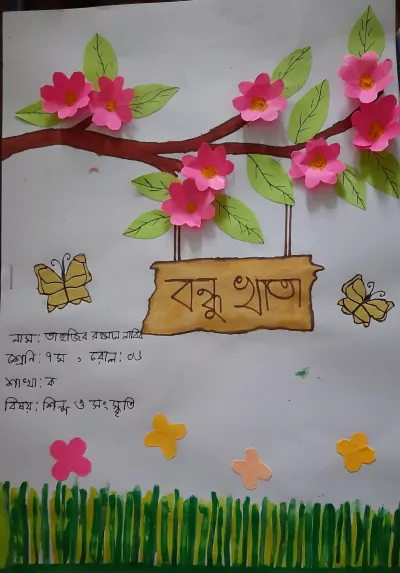 বন্ধু খাতা
নাম: তাহজিব রহমান নাবিল
শ্রেণি: ৭ম , রোল: ০১
শাখা: ক
বিষয়: শিল্প ও সংস্কৃতি